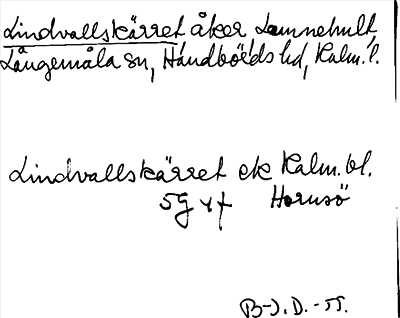 Lindvallskärret åker Lemnehult,
Långemåla sn, Handbörds hd, Kalm. l.
Lindvallskärret ek Kalm. bl.
5G y f Hornsö
B-J. D. -55.